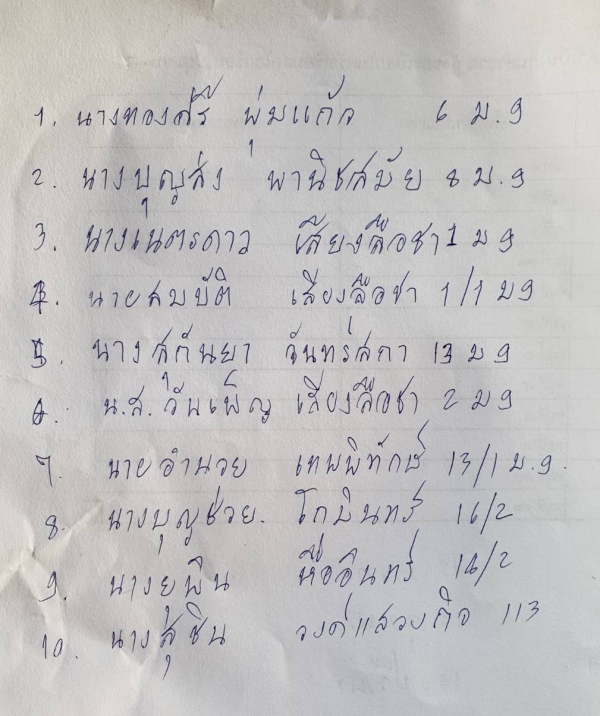 1. นางทองศรี พุ่มแก้ว 6 ม.9
2. นางบุญส่ง พานิชสมัย 8 ม.9
3. นางเนตรดาว เสียงลือชา 1 ม9
4. นายสมบัติ เสียงลือชา 1/1 ม9
5. นางสุกันยา จันทร์สกา 13 ม9
6. น.ส.วันเพ็ญ เสียงลือชา 2 ม9
7. นายอำนวย เทพพิทักษ์ 13/1 ม.9.
8. นางบุญช่วย. โกมินทร์ 16/2
9. นางยุพิน 16/2
10. นางสุชิน วงค์แสวงกิจ 113